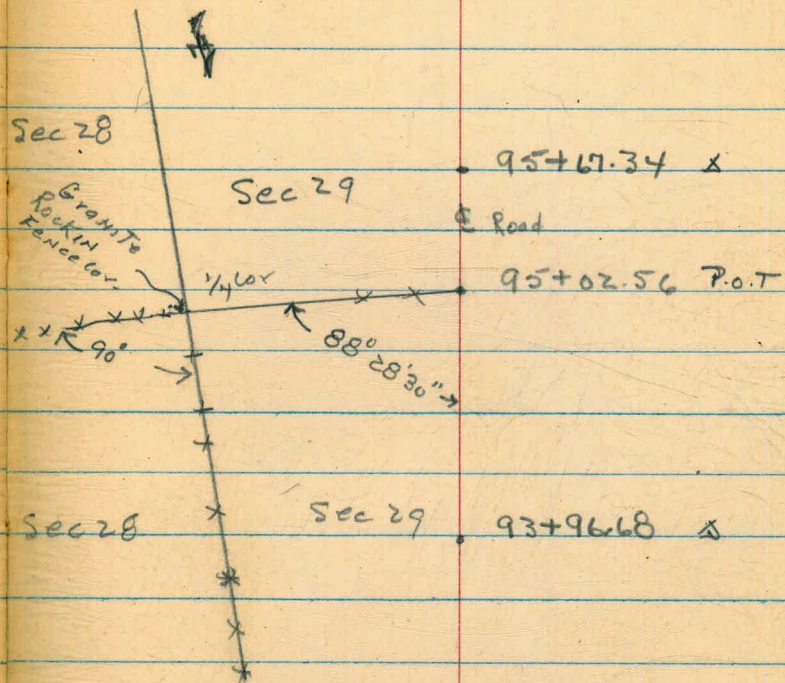 Sec 28
Sec 29
95+67.34 ⊼
Granite
Rock in
Fence Cor.
℄ Road
1/4 Cor
95+02.56 P.O.T
90°
88° 28'30"
Sec 28
Sec 29
93+96.68 ⊼